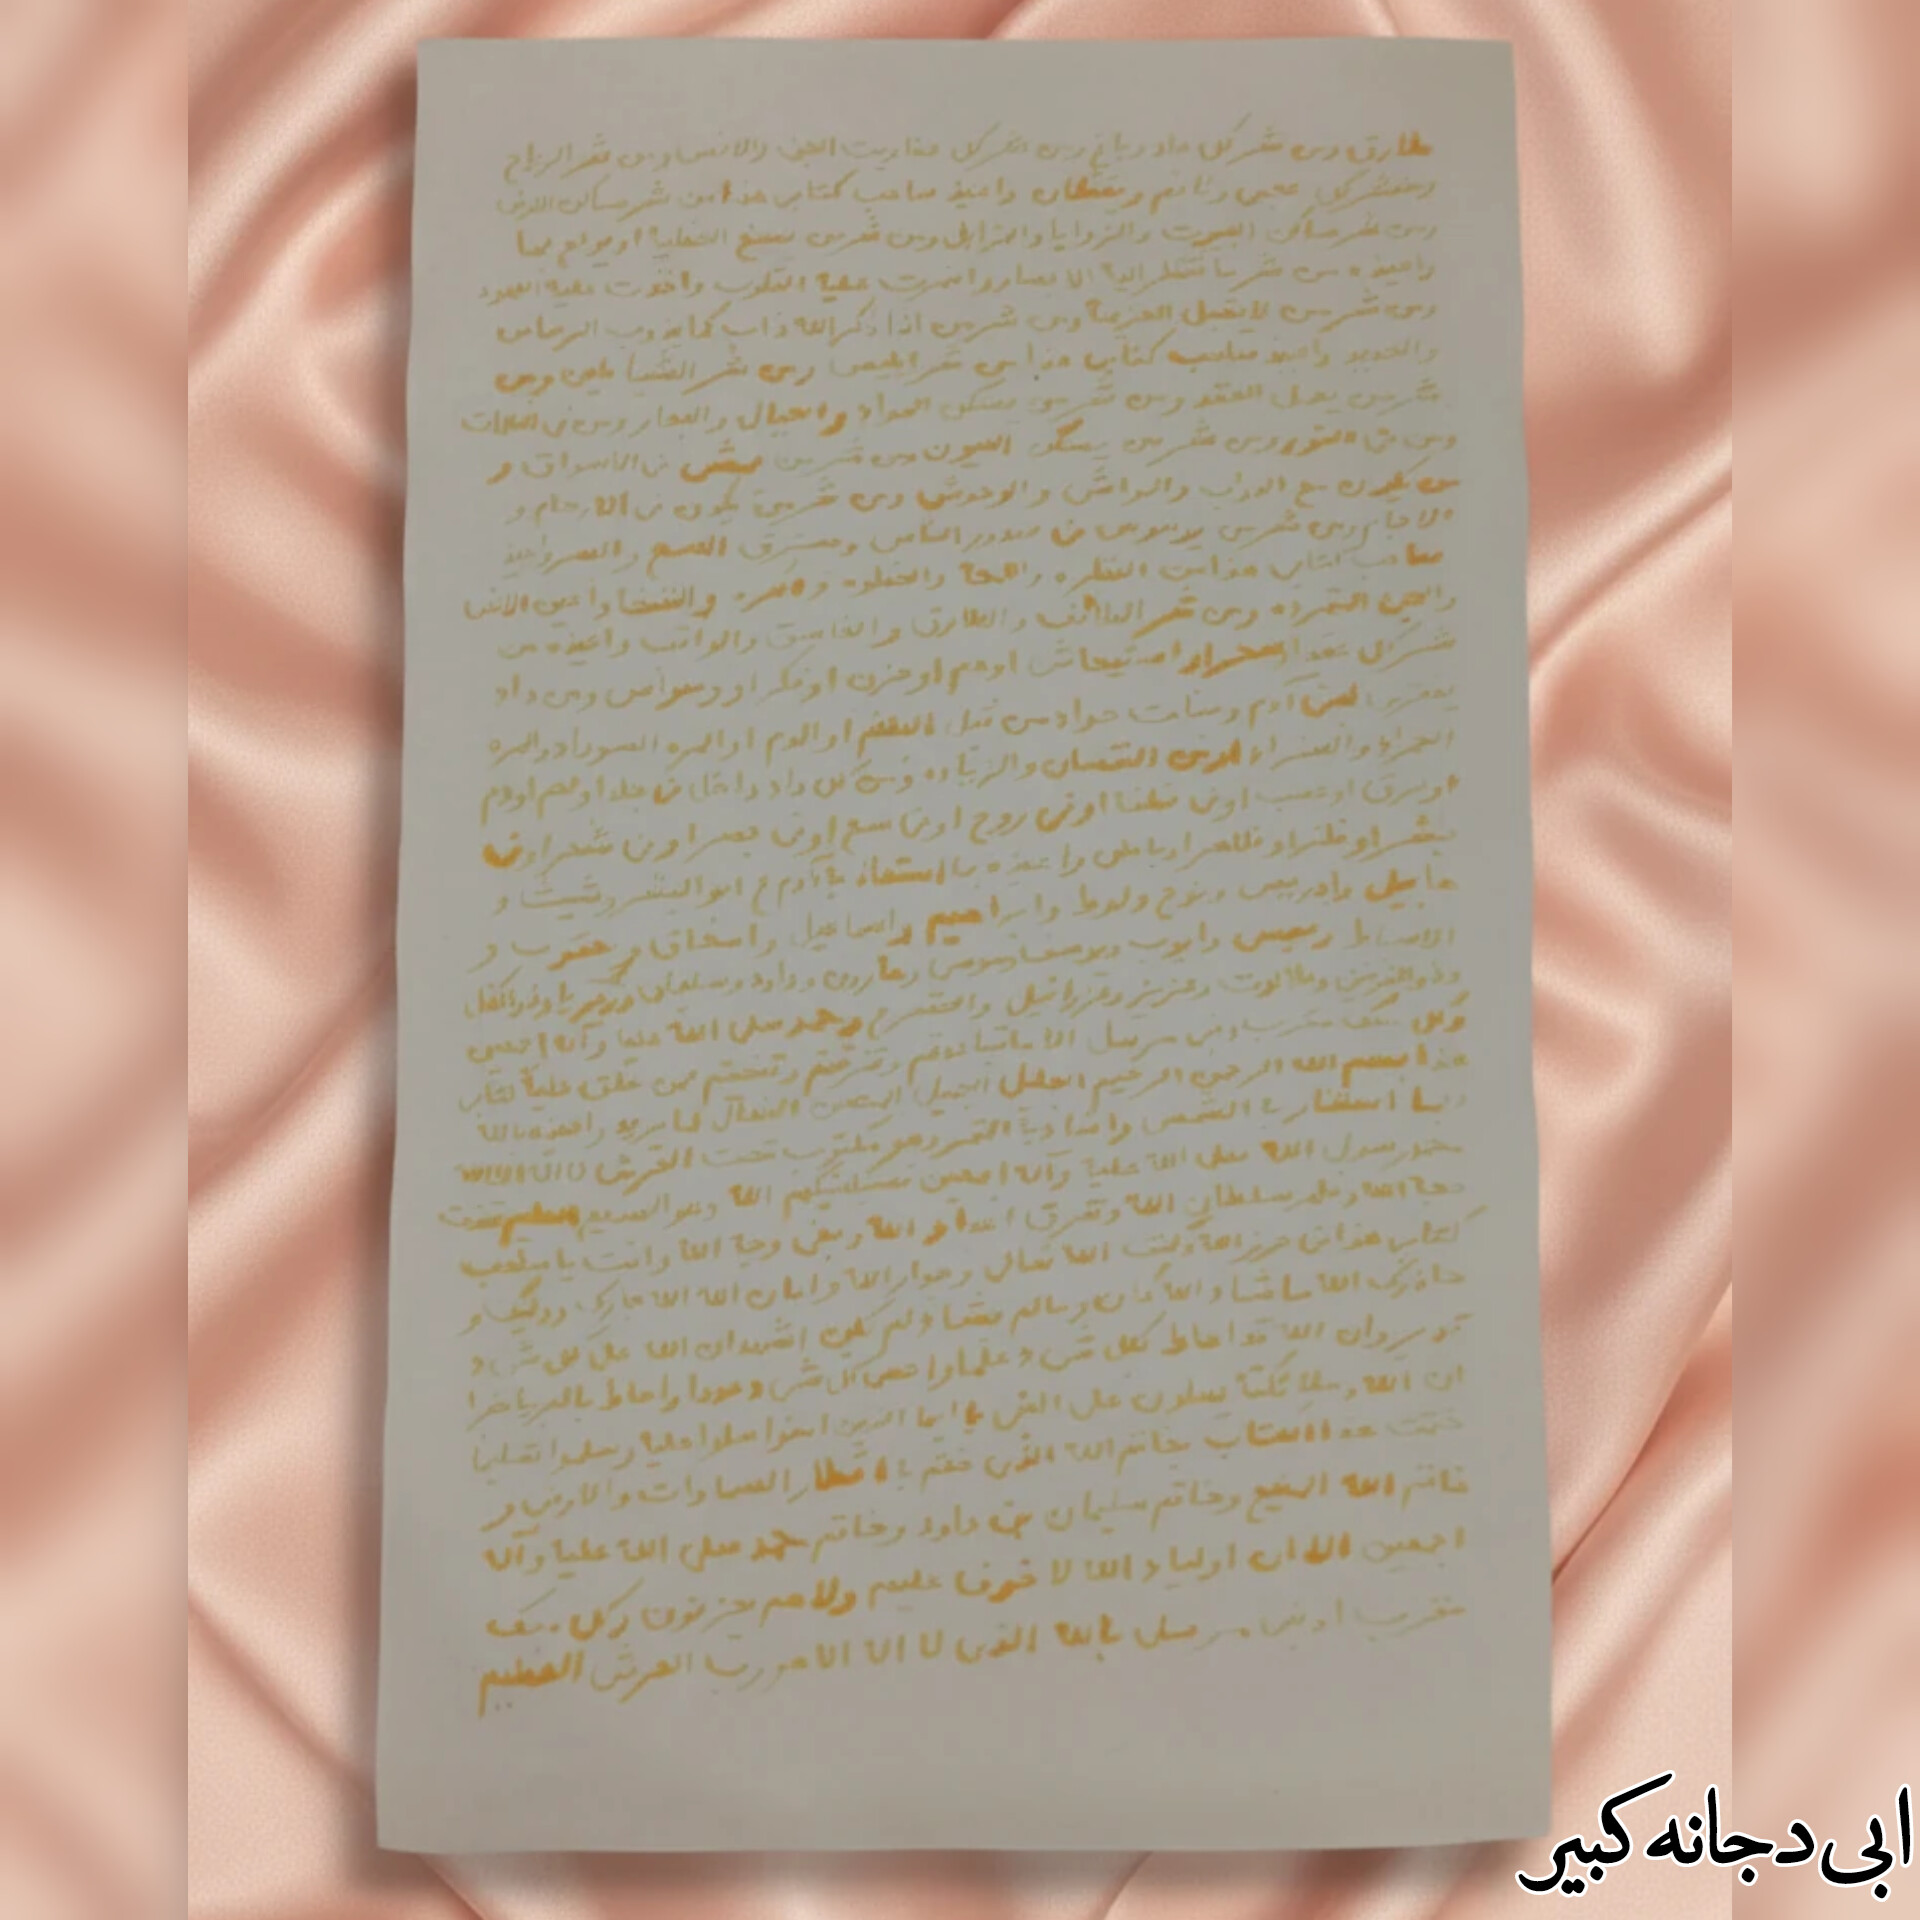 طارق ومن شر كل ومن شر كل عفاريت الجن والانس ومن شر الرياح
ومن شر كل عجمي ونائم ويقظان واعيذ صاحب كتابي هذا من شر ساكن الارض
ومن شر ساكن البيوت والزوايا والمزابل ومن شر من يصنع الخطيئة او يولع بها
واعيذه من شر ما تنظر اليه الابصار واضمرت عليه القلوب واخذت عليه العهود
ومن شر من لا يقبل العزيمة ومن شر من اذا ذكر الله ذاب كما يذوب الرصاص
والحديد واعيذ صاحب كتابي هذا من شر ابليس ومن شر الشياطين ومن
شر من يعمل العقد ومن شر من يسكن الهواء والجبال والبحار ومن في الظلمات
ومن في النور ومن شر من يسكن العيون ومن شر من يمشي في الأسواق و
من يكون مع الدواب والمواشي والوحوش ومن شر من يكون في الارحام و
الاجام ومن شر من يوسوس في صدور الناس ويسترق السمع والبصر واعيذ
صاحب كتابي هذا من النظره واللمحة والخطوه و والنفخا واعين الانس
والجن المتمرده ومن شر الطائف والطارق والغاسق والواقب واعيذه من
شر كل عقد او سحر او استيحاش او هم او حزن او فكر او وسواس ومن داء
يفتري لبني آدم وبنات حواء من قبل البلغم او الدم او المره السوداء والمره
الحمراء والصفراء او من النقصان والزياده ومن كل داء داخل في جلد او لحم او دم
او عرق او عصب او في نطفا او في روح او في سمع او في بصر او في شعر او في
بشر او ظفر او ظاهر او باطن واعيذه بما استعاذ به آدم ع ابو البشر وشيث و
هابيل وادريس ونوح ولوط وابراهيم واسماعيل واسحاق ويعقوب و
الاسباط وعيسى وايوب ويوسف وموسى وهارون وداود وسليمان وزكريا وذو الكفل
وذو القرنين وطالوت وعزيز وعزرائيل والخضر ع ومحمد صلى الله عليه وآله اجمعين
وكل ملك مقرب ونبي مرسل الا ما تباعدتم وتفرقتم وتنحيتم ممن علق عليه كتابي
هذا بسم الله الرحمن الرحيم الجليل الجميل المحسن الفعال لما يريد واعيذه بالله
وبما استنار به الشمس واضاء به القمر وهو مكتوب تحت العرش لا اله الا الله
محمد رسول الله صلى الله عليه وآله اجمعين فسيكفيكهم الله وهو السميع العليم نفذت
حجة الله وظهر سلطان الله وتفرق اعداء الله وبقى وجه الله وانت يا صاحب
كتابي هذا في حرز الله وكنف الله تعالى وجوار الله وامان الله الله جارك ووليك و
حاذرك الله ما شاء الله كان وما لم يشاء لم يكن اشهد ان الله على كل شيء
قدير وان الله قد احاط بكل شيء علما واحصى كل شيء عددا واحاط بالبريا خبرا
ان الله وملائكته يصلون على النبي يا ايها الذين امنوا صلوا عليه وسلموا تسليما
ختمت هذا الكتاب بخاتم الله الذي ختم به اقطار السماوات والارض و
خاتم الله المنيع وخاتم سليمان بن داود وخاتم محمد صلى الله عليه وآله
اجمعين الا ان اولياء الله لا خوف عليهم ولا هم يحزنون وكل ملك
مقرب او نبي مرسل بالله الذي لا اله الا هو رب العرش العظيم
ابی دجانه کبیر